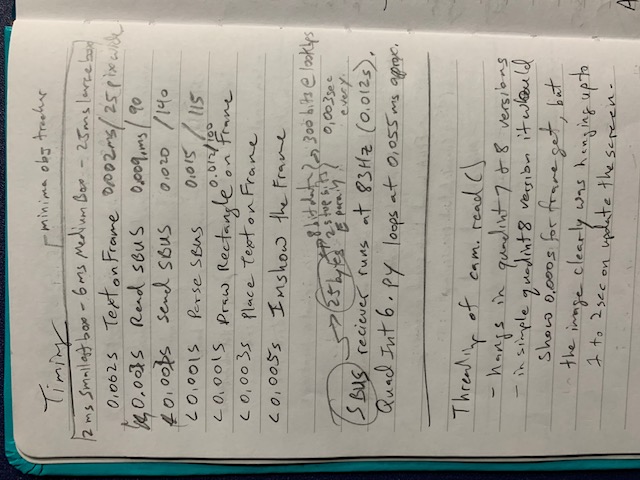 Timing minima obj tracker
2 ms Smallest box - 6ms Medium Box - 25ms large box
0.002s Text on Frame 0.002ms/25 pix wide
0.003s Read SBUS 0.009ms/90
<0.001s Send SBUS 0.020/140
<0.001s Parse SBUS 0.015/115
0.012/100
<0.001s Draw Rectangle on Frame
<0.003s Place Text on Frame
<0.005s Imshow the Frame
25 bytes 8 bit data 300 bits @ 100kbps
2 stop bits 0,003sec
E parity every.
SBUS reciever runs at 83Hz (0.012s).
Quad Int 6. py loops at 0,055 ms approx.
Threading of cam. read ()
- hangs in quadint 7 & 8 versions
- in simple quadint8 version it would
show 0.000s for frame get, but
the image clearly was hanging up to
1 to 2 sec on update the screen.